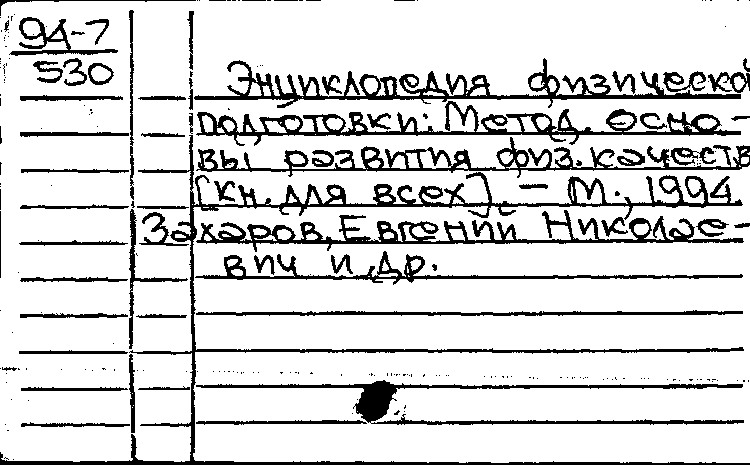 94-7
530
Энциклопедия физической
подготовки: Метод. осно-
вы развития физ. качеств
[кн. для всех]. - М., 1994.
Захаров, Евгений Николае-
вич и др.